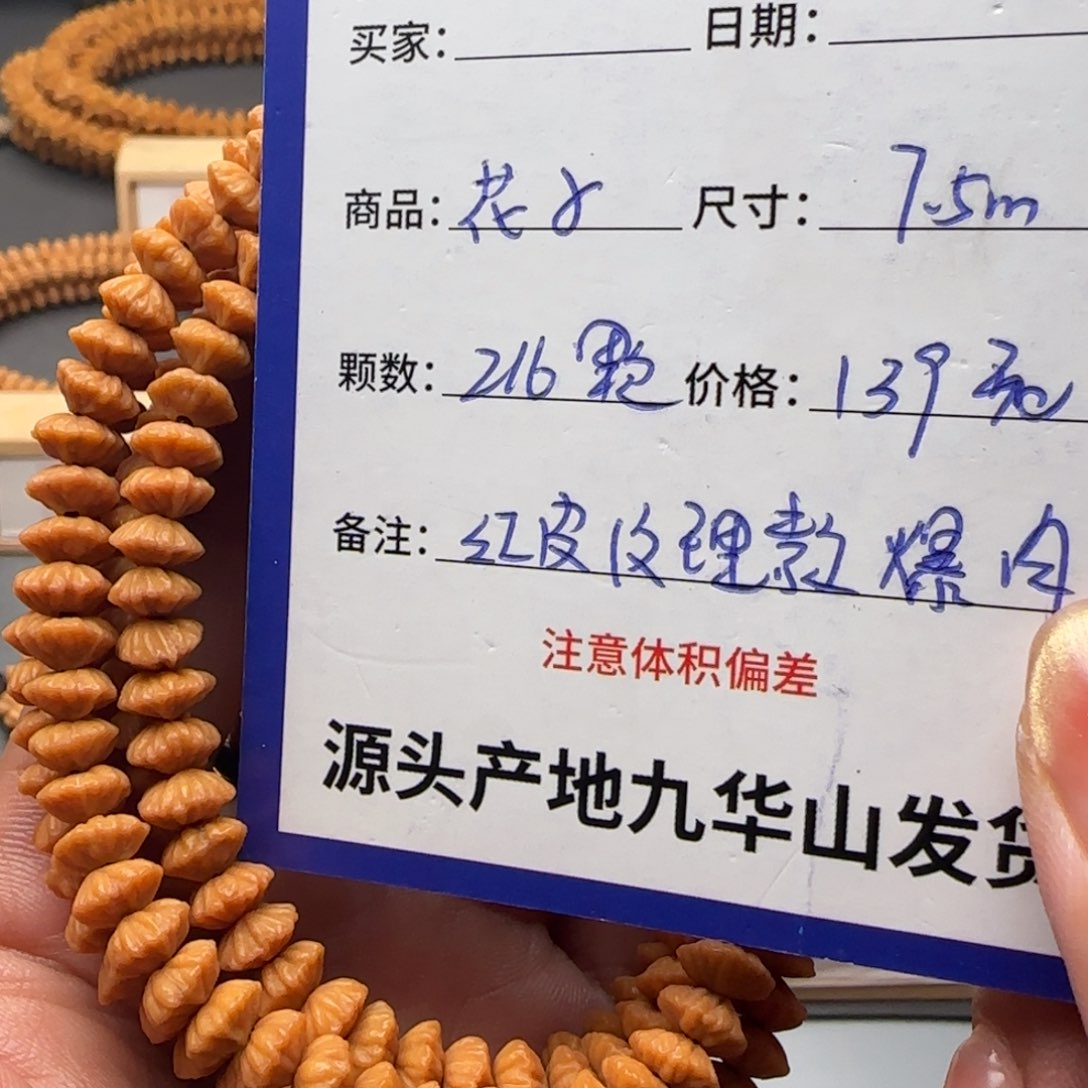 买家: 日期:
商品: 花子 尺寸: 7.5m
颗数: 216颗 价格: 139元
备注: 红皮纹理款 爆肉
注意体积偏差
源头产地九华山发货